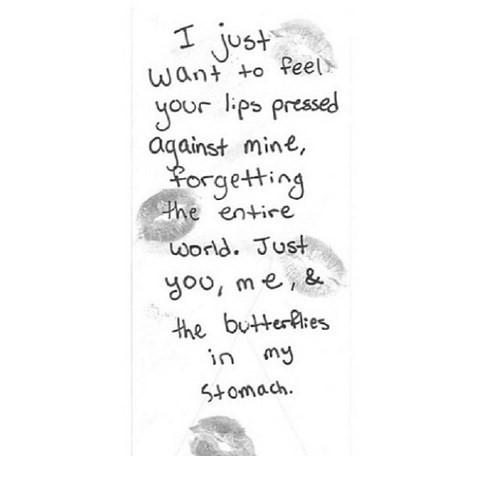 I just
want to feel
your lips pressed
against mine,
forgetting
the entire
world. Just
you, me, &
the butterflies
in my
stomach.